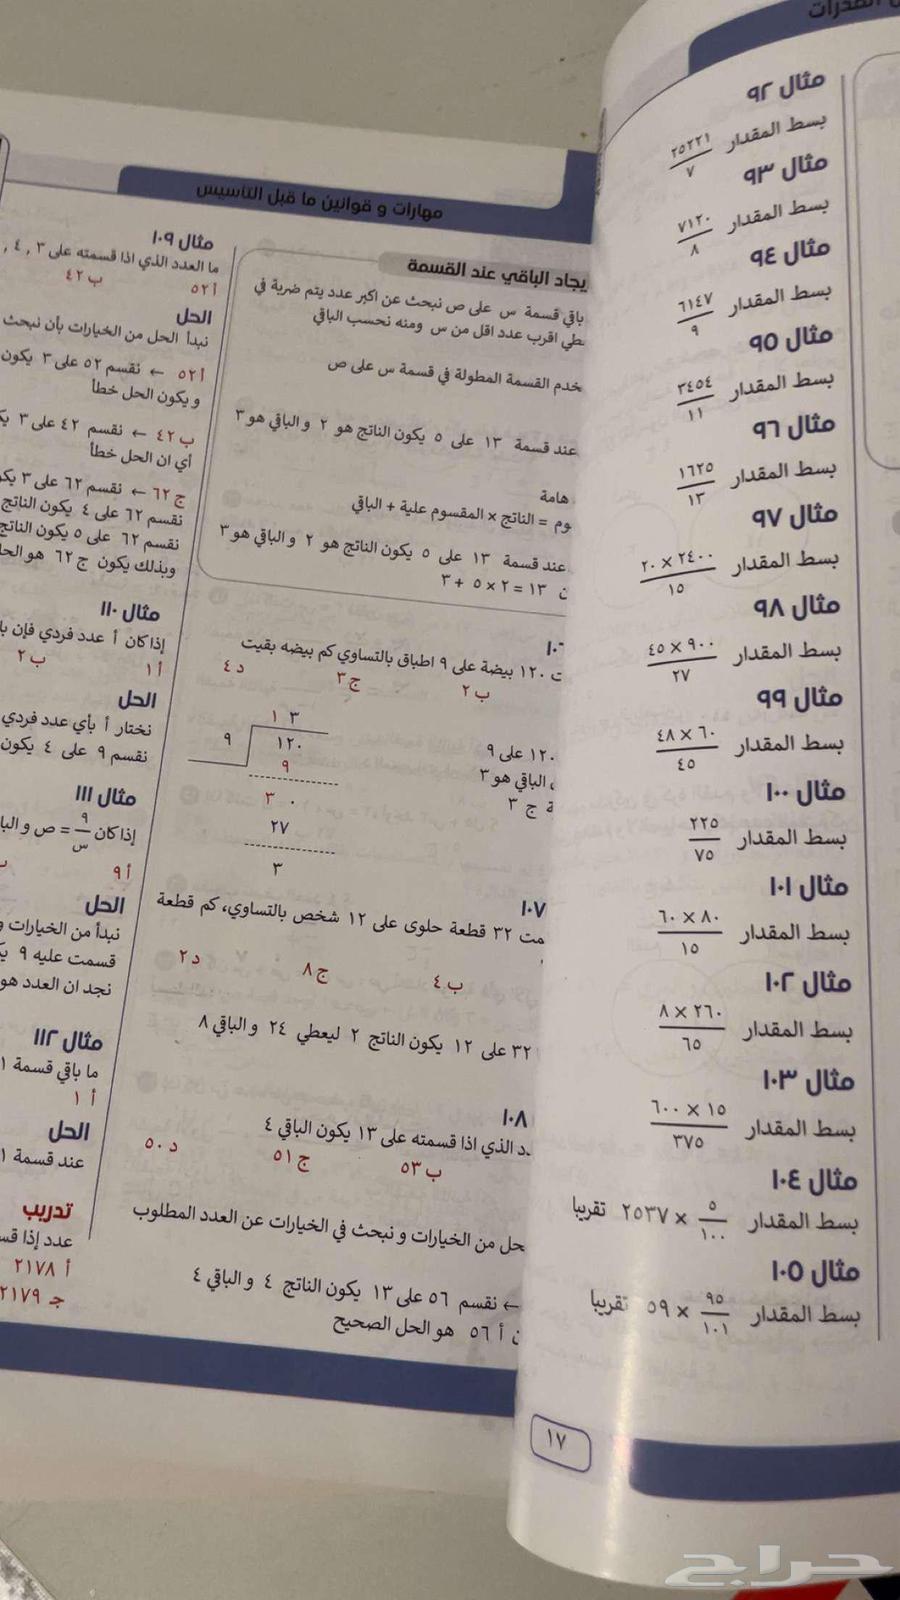 مثال ٩٢
بسط المقدار ٢٥٢٢١ / ٧
مثال ٩٣
بسط المقدار ٧١٢٠ / ٨
مثال ٩٤
بسط المقدار ٦١٤٧ / ٩
مثال ٩٥
بسط المقدار ٣٤٥٤ / ١١
مثال ٩٦
بسط المقدار ١٦٢٥ / ١٣
مثال ٩٧
بسط المقدار ٢٤٠٠ × ٢٠ / ١٥
مثال ٩٨
بسط المقدار ٩٠٠ × ٤٥ / ٢٧
مثال ٩٩
بسط المقدار ٦٠ × ٤٨ / ٤٥
مثال ١٠٠
بسط المقدار ٢٢٥ / ٧٥
مثال ١٠١
بسط المقدار ٨٠ × ٦٠ / ١٥
مثال ١٠٢
بسط المقدار ٢٦٠ × ٨ / ٦٥
مثال ١٠٣
بسط المقدار ١٥ × ٦٠٠ / ٣٧٥
مثال ١٠٤
بسط المقدار ٥ / ١٠٠ × ٢٥٣٧ تقريبا
مثال ١٠٥
بسط المقدار ٩٥ / ١٠١ × ٥٩ تقريبا
١٧
مهارات و قوانين ما قبل التأسيس
يجاد الباقي عند القسمة
باقي قسمة س على ص نبحث عن اكبر عدد يتم ضربة في
طي اقرب عدد اقل من س ومنه نحسب الباقي
خدم القسمة المطولة في قسمة س على ص
عند قسمة ١٣ على ٥ يكون الناتج هو ٢ و الباقي هو ٣
هامة
وم = الناتج × المقسوم علية + الباقي
عند قسمة ١٣ على ٥ يكون الناتج هو ٢ و الباقي هو ٣
ن ١٣ = ٢ × ٥ + ٣
ت ١٢٠ بيضة على ٩ اطباق بالتساوي كم بيضه بقيت
ب ٢ ج ٣ د ٤
١٢٠ على ٩
الباقي هو ٣
ة ج ٣
١ ٣
٩ ١٢٠
٩
٣ ٠
٢٧
٣
١٠٧
مت ٣٢ قطعة حلوى على ١٢ شخص بالتساوي، كم قطعة
ب ٤ ج ٨ د ٢
٣٢ على ١٢ يكون الناتج ٢ ليعطي ٢٤ و الباقي ٨
١٠٨
دد الذي اذا قسمته على ١٣ يكون الباقي ٤
ب ٥٣ ج ٥١ د ٥٠
حل من الخيارات و نبحث في الخيارات عن العدد المطلوب
← نقسم ٥٦ على ١٣ يكون الناتج ٤ و الباقي ٤
ن أ ٥٦ هو الحل الصحيح
مثال ١٠٩
ما العدد الذي اذا قسمته على ٣ , ٤ ,
أ ٥٢ ب ٤٢
الحل
نبدأ الحل من الخيارات بأن نبحث
أ ٥٢ ← نقسم ٥٢ على ٣ يكون
و يكون الحل خطأ
ب ٤٢ ← نقسم ٤٢ على ٣
أي ان الحل خطأ
ج ٦٢ ← نقسم ٦٢ على ٣ يكو
نقسم ٦٢ على ٤ يكون الناتج
نقسم ٦٢ على ٥ يكون الناتج
وبذلك يكون ج ٦٢ هو الحل
مثال ١١٠
إذا كان أ عدد فردي فإن با
أ ١ ب ٢
الحل
نختار أ بأي عدد فردي
نقسم ٩ على ٤ يكون
مثال ١١١
إذا كان ٩ / س = ص و البا
أ ٩
الحل
نبدأ من الخيارات و
قسمت عليه ٩
نجد ان العدد هو
مثال ١١٢
ما باقي قسمة ١
أ ١
الحل
عند قسمة ١
تدريب
عدد إذا قس
أ ٢١٧٨
جـ ٢١٧٩
حراج